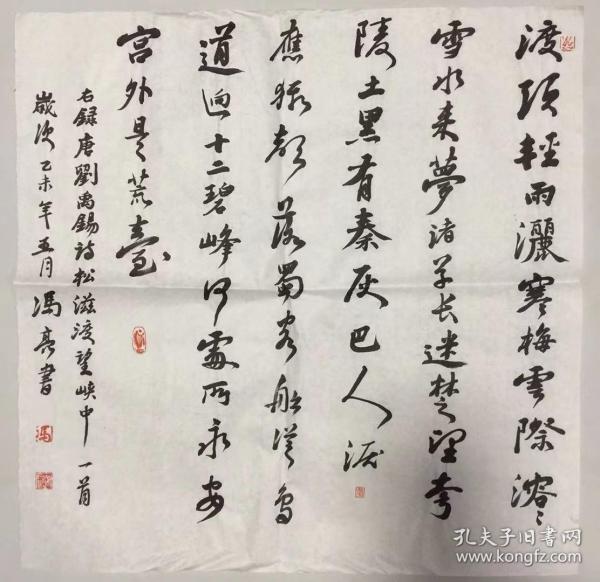 渡頭輕雨灑寒梅雲際溶〻
雪水来夢渚草长迷楚望夷
陵土黑有秦灰巴人淚
應猿聲落蜀客船從鳥
道迴十二碧峰何處所永安
宫外是荒臺
右録唐劉禹錫詩松滋渡望峡中一首
歲次乙未年五月馮亮書
馮
孔夫子旧书网
www.kongfz.com